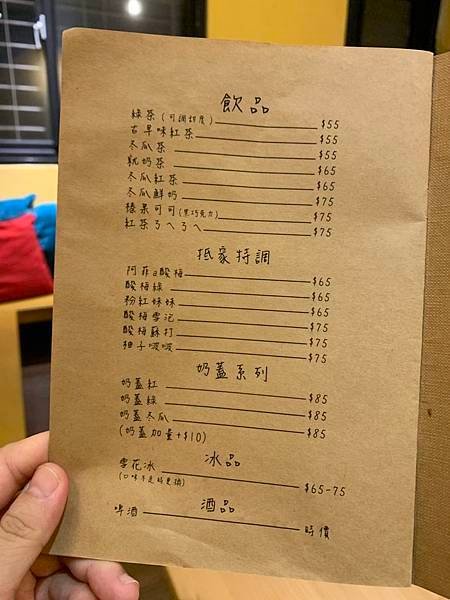 飲品
綠茶(可調甜度) $55
古早味紅茶 $55
冬瓜茶 $55
鴛奶茶 $65
冬瓜紅茶 $65
冬瓜鮮奶 $75
榛果可可(黑巧克力) $75
紅茶ㄋㄟㄋㄟ $75
抵家特調
阿菲a酸梅 $65
酸梅綠 $65
粉紅妹妹 $65
酸梅雪泥 $75
酸梅蘇打 $75
柚子啵啵 $75
奶蓋系列
奶蓋紅 $85
奶蓋綠 $85
奶蓋冬瓜 $85
(奶蓋加量+$10)
冰品
雪花冰 $65-75
(口味不定時更換)
酒品
啤酒 時價